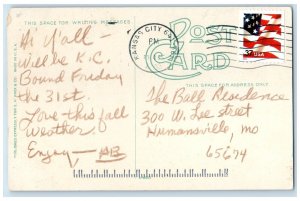 THIS SPACE FOR WRITING MESSAGES
KANSAS CITY
PM
POST
CARD
USA
THIS SPACE FOR ADDRESS ONLY
Hi Y'all –
Will be K.C.
Bound Friday
the 31st.
Love this fall
weather.
Enjoy – AB
The Ball Residence
300 W. Lee street
Humansville, mo
65674